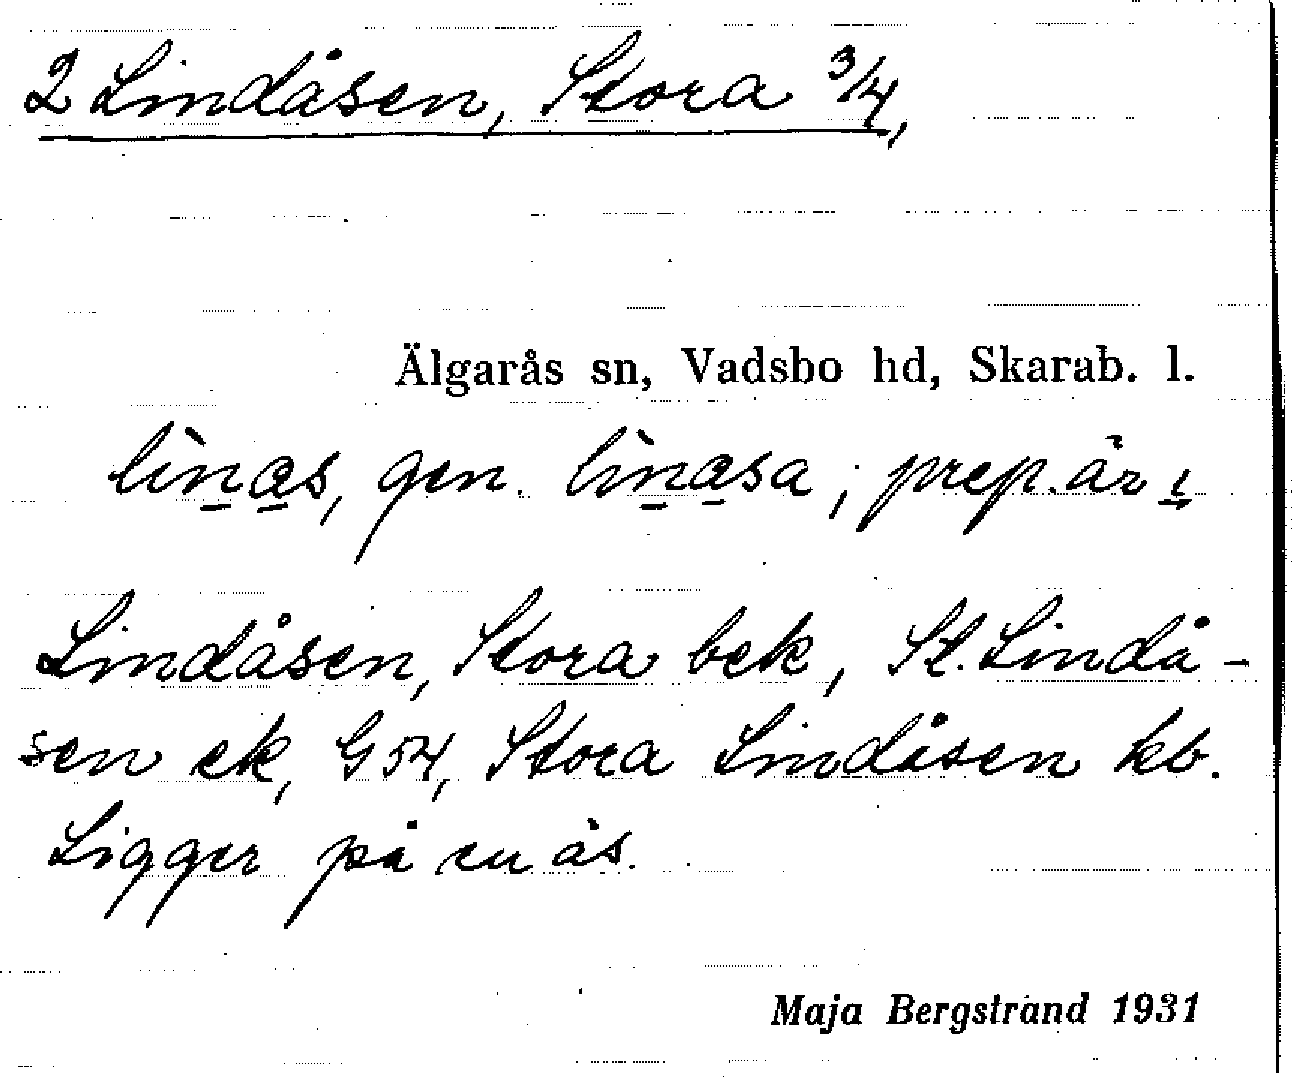 2 Lindåsen, Stora 3/4,
Älgarås sn, Vadsbo hd, Skarab. l.
lìnas, gen. lìnasa; prep. är ı
Lindåsen, Stora bek, St. Lindå-
sen ek, G54, Stora Lindåsen kb.
Ligger på en ås.
Maja Bergstrand 1931